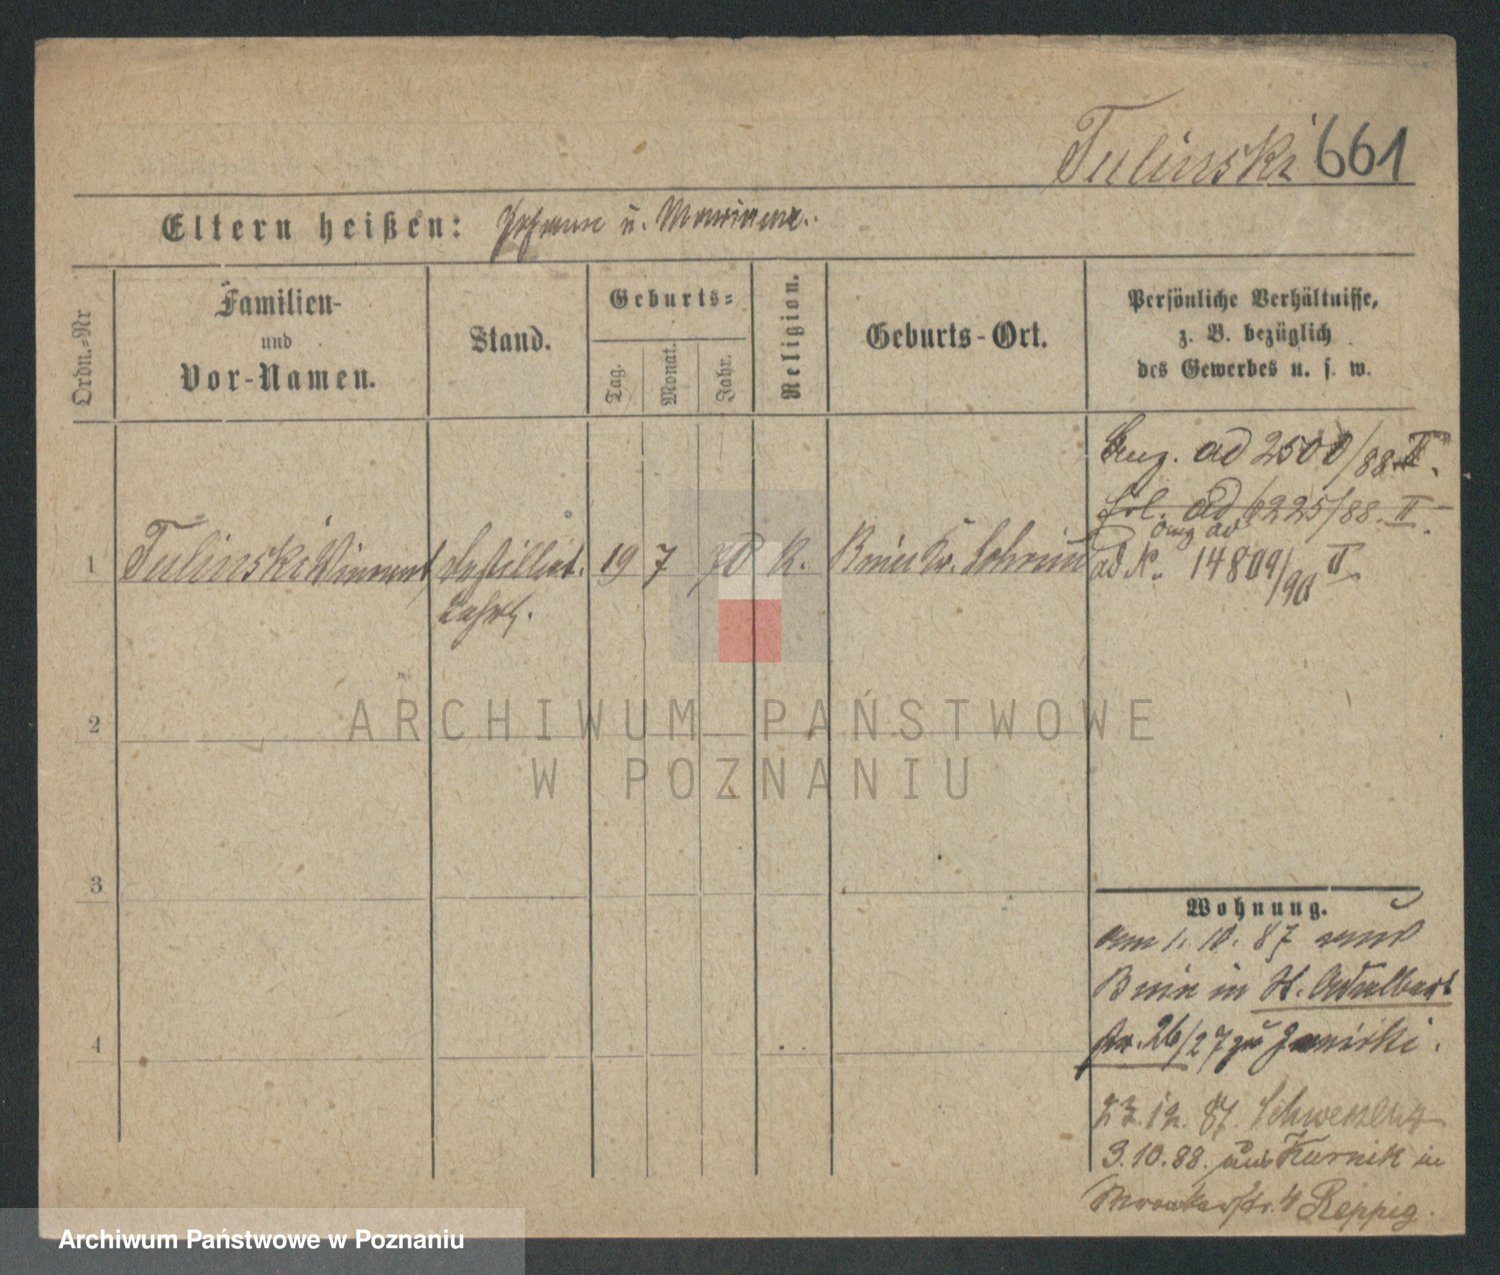 Tulinski 661
Eltern heißen: Johann u. Marianna.
Ordn.=Nr
Familien-
und
Vor-Namen.
Stand.
Geburts=
Tag.
Monat.
Jahr.
Religion.
Geburts-Ort.
Persönliche Verhältnisse,
z. B. bezüglich
des Gewerbes u. s. w.
ad 2500/88 II.
ad 6225/88 II.
1 Tulinski Vincent Destillat. 19 7 70 K. Bnin Kr. Schrim
Lehrl.
ad N. 14809/90 II
2
3
4
Wohnung.
am 1. 10. 87 aus
Bnin in St. Adalbert
str. 26/27 zu
23. 12. 87. Schwersenz
3. 10. 88. aus Kurnik in
Wronkerstr. 4 Reppig.
ARCHIWUM PAŃSTWOWE
W POZNANIU
Archiwum Państwowe w Poznaniu